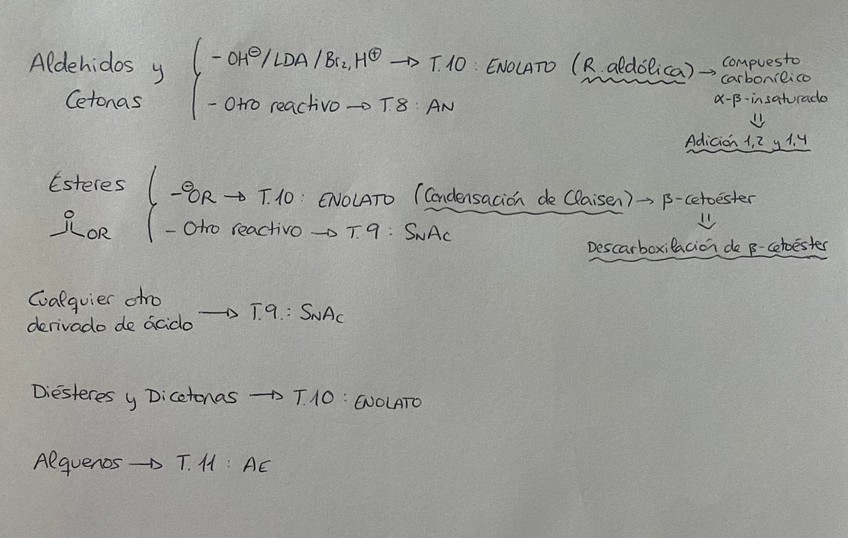 Aldehidos y Cetonas
- OH⊖/LDA/Br₂,H⊕ → T.10 : ENOLATO (R. aldólica) → compuesto carbonílico α-β-insaturado
⇓
Adición 1,2 y 1,4
- Otro reactivo → T.8 : AN
Ésteres
O
OR
- ⊖OR → T.10 : ENOLATO (Condensación de Claisen) → β-cetoéster
⇓
Descarboxilación de β-cetoéster
- Otro reactivo → T.9 : SNAc
Cualquier otro
derivado de ácido → T.9.: SNAc
Diésteres y Dicetonas → T.10 : ENOLATO
Alquenos → T.11 : AE